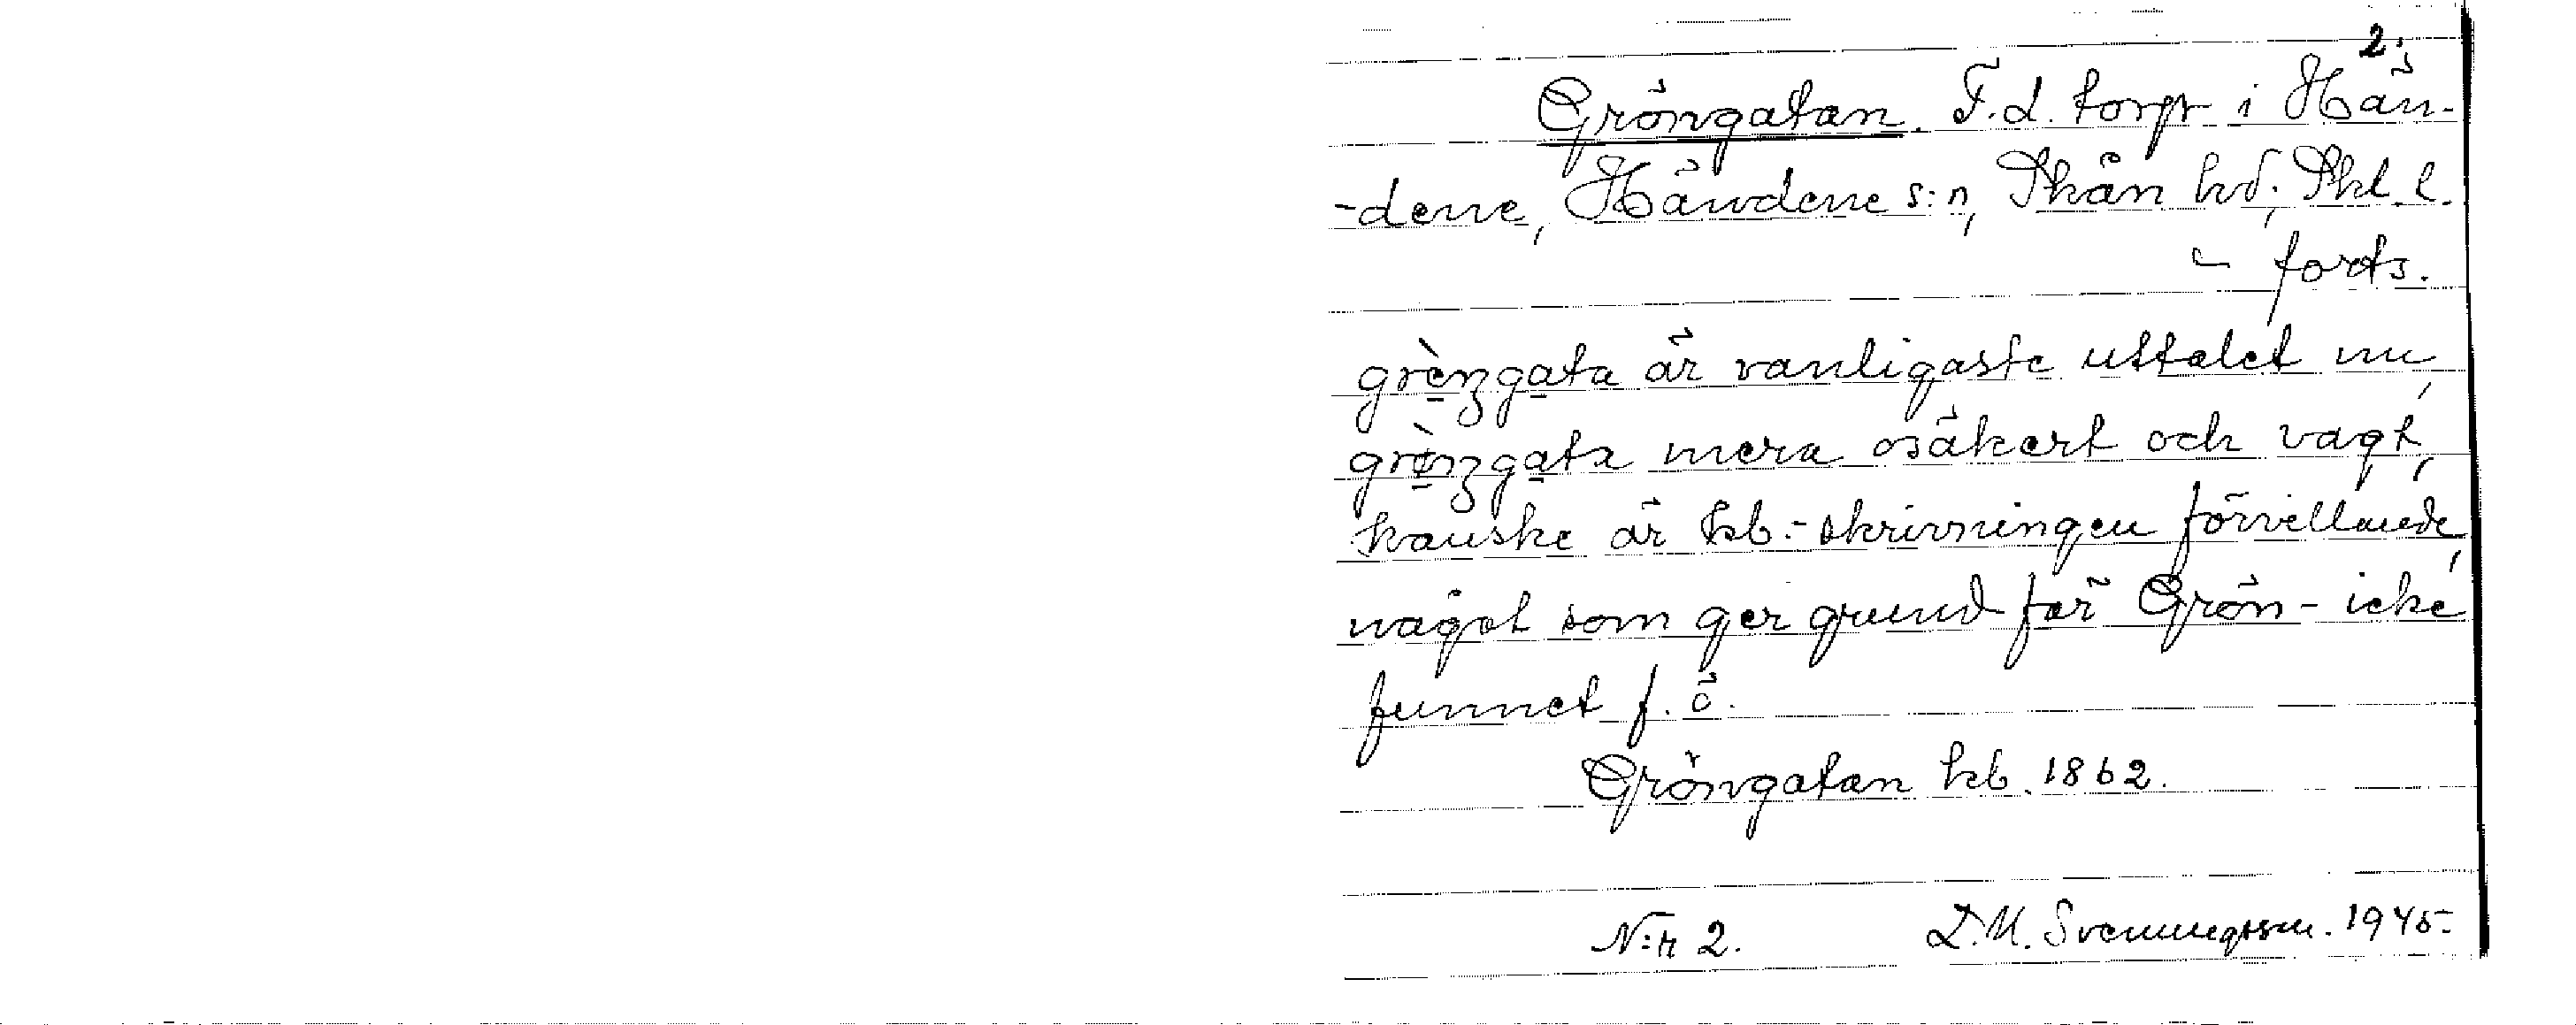 2.
Gröngatan. F.d. torp i Hän-
-dene, Händene s:n, Skån hd; Skl. l.
- forts.
grènzgata är vanligaste uttalet nu,
grènzgata mera osäkert och vagt,
kanske är kb.-skrivningen förvillande,
något som ger grund för Grön- icke
funnet f. ö.
Gröngatan kb. 1862.
N:r 2. D.M. Svenningsson. 1945.